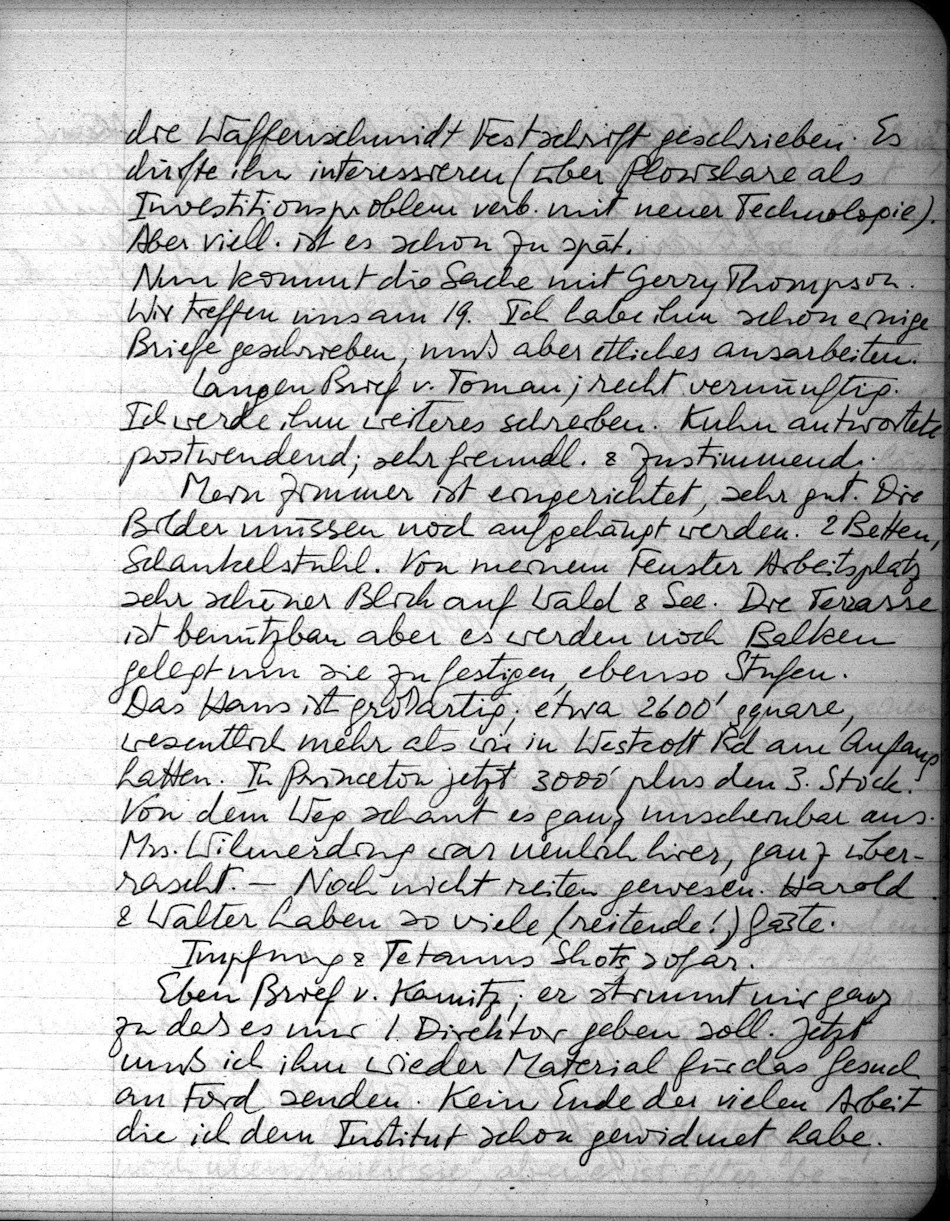 die Waffenschmidt Festschrift geschrieben. Es
dürfte ihn interessieren (über Plowshare als
Investitionsproblem verb. mit neuer Technologie).
Aber viell. ist es schon zu spät.
Nun kommt die Sache mit Gerry Thompson.
Wir treffen uns am 19. Ich habe ihm schon einige
Briefe geschrieben, muß aber etliches ausarbeiten.
Langen Brief v. Toman; recht vernünftig.
Ich werde ihm weiteres schreiben. Kuhn antwortete
postwendend; sehr freundl. & zustimmend.
Mein Zimmer ist eingerichtet, sehr gut. Die
Bilder müssen noch aufgehängt werden. 2 Betten,
Schaukelstuhl. Von meinem Fenster Arbeitsplatz
sehr schöner Blick auf Wald & See. Die Terrasse
ist benützbar aber es werden noch Balken
gelegt um sie zu festigen, ebenso Stufen.
Das Haus ist großartig; etwa 2600' square,
wesentlich mehr als wir in Westcott Rd am Anfang
hatten. In Princeton jetzt 3000' plus den 3. Stock.
Von dem Weg schaut es ganz unscheinbar aus.
Mrs. Wilmerding war neulich hier, ganz über-
rascht. – Noch nicht reiten gewesen. Harold
& Walter haben so viele (reitende!) Gäste.
Impfung & Tetanus Shots sofar.
Eben Brief v. Kamitz; er stimmt mir ganz
zu daß es nur 1 Direktor geben soll. Jetzt
muß ich ihm wieder Material für das Gesuch
an Ford senden. Kein Ende der vielen Arbeit
die ich dem Institut schon gewidmet habe.